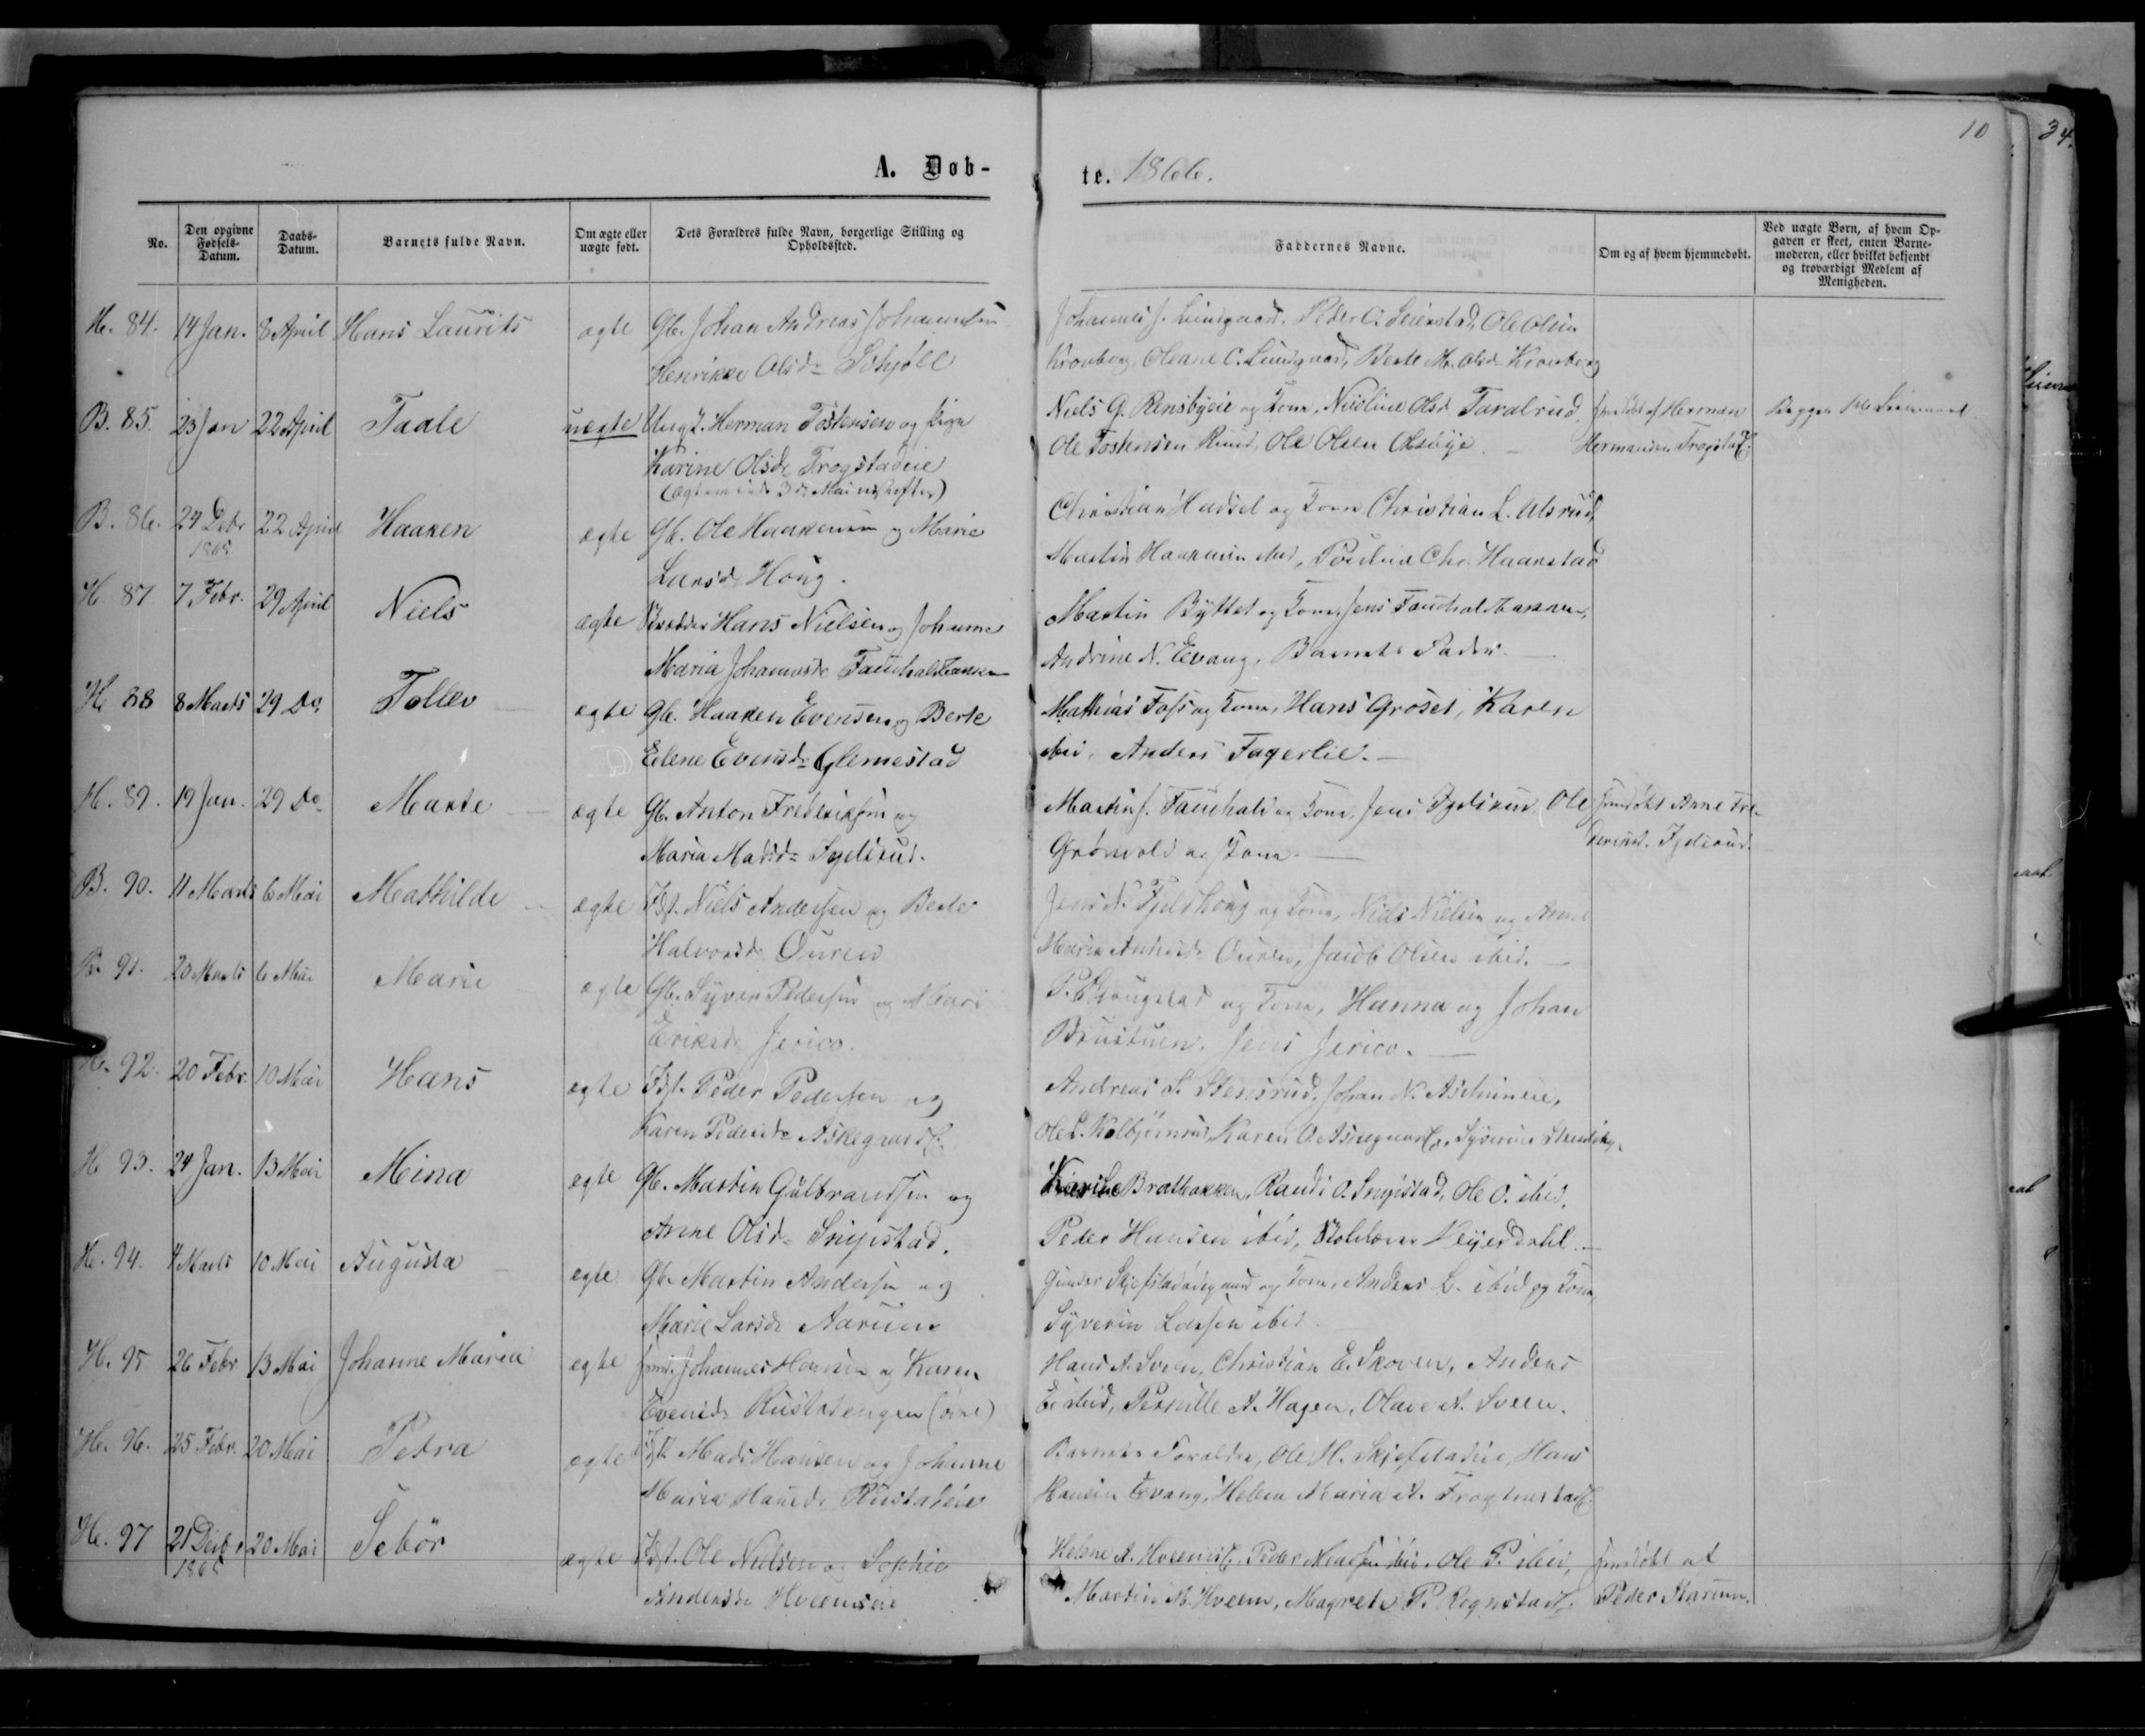 10
34.
A. Døb-
te. 1866.
No.
Den opgivne Fødsels-Datum.
Daabs-Datum.
Barnets fulde Navn.
Om ægte eller uægte født.
Dets Forældres fulde Navn, borgerlige Stilling og Opholdssted.
Faddernes Navne.
Om og af hvem hjemmedøbt.
Ved uægte Børn, af hvem Opgaven er skeet, enten Barnemoderen, eller hvilket bekjendt og troværdigt Medlem af Menigheden.
H. 84. 14 Jan. 8 April Hans Laurits ægte Gb. Johan Andreas Johannesen
Henrikke Olsd. Schjøll
Johannes J. Lundgaard, Peder O. Seierstad, Ole Olsen
Kronborg, Oleane C. Lundgaard, Berte M. Olsd. Kronborg
B. 85. 23 Jan 22 April Taale uægte Ungk. Herman Tostensen og Pige
Karine Olsd. Frogstadeie
Niels G. Rensbyeie og Kone, Nicoline Olsd. Taralrud
Ole Tostensen Ruud, Ole Olsen
hjmdøbt af Herman
Hermansen Frogstad
Begges 1ste
B. 86. 24 Debr 22 April Haaken ægte Gb. Ole Haakensen og Marie
1865
Larsd. Houg.
Christian Hadsel og Kone Christian L. Ulsrud,
Martin Haakensen ibid, Pauline Chr. Haarstad
H. 87. 7 Febr. 29 April Niels ægte Skrædder Hans Nielsen og Johanne
Maria Johannesd. Fauchald
Martin Byttet og Kone, Jens Fauchald
Andrine N. Evang, Barnets Fader.
H. 88 8 Marts 29 Do. Tollev ægte Gb. Haaken Evensen og Berte
Elene Evensd. Glemestad
Mathias Foss og Kone, Hans Grøset, Karen
ibid, Anders Fagerlie.
H. 89. 19 Jan. 29 Do Marte ægte Gb. Anton Frederiksen og
Maria Madsd.
Martin J. Fauchald og Kone, Jens Ole
Grønvold og Kone
hjmdøbt Anne Fre-
B. 90. 11 Marts 6 Mai Mathilde ægte Igst. Niels Andersen og Berte
Halvorsd. Ouren
Jens N. Fjeldhoug og Kone, Niels Nielsen og Anne
Maria Andersd. Ouren, Jacob Olsen ibid.
B. 91. 20 Marts 6 Mai Marie ægte Gb. Syver Pedersen og Mari
Eriksd. Jerico.
P. og Kone, Hanna og Johan
Brustuen, Jens Jerico.
H. 92. 20 Febr. 10 Mai Hans ægte Igst. Peder Pedersen og
Karen Pedersd. Askegaard
Andreas S. Stensrud, Johan N.
Ole L. Kolbjørnsrud, Karen
H. 93. 24 Jan. 13 Mai Mina ægte Gb. Martin Gulbrandsen og
Anne Olsd. Snipstad.
Karine Bratbakken, Randi O. Snipstad, Ole O. ibid,
Peder Hansen ibid, Skolelærer
H. 94. 4 Marts 10 Mai Augusta ægte Gb. Martin Andersen og
Marie Larsd. Aarum
Gunder og Kone, Anders L. ibid og Kone,
Syverin Larsen ibid.
H. 95 26 Febr 13 Mai Johanne Maria ægte Johannes Hansen og Karen
Evensd. Rustadengen
Hans A. Sveen, Christian E. Skoven, Anders
E. ibid, Pernille A. Hagen, Olave A. Sveen.
H. 96. 25 Febr. 20 Mai Petra ægte Igst. Mads Hansen og Johanne
Maria Hansd. Rustadeie
Barnets Forældre, Ole H. Hans
Hansen Evang, Helene Maria A.
H. 97 21 Debr 20 Mai ægte Igst. Ole Nielsen og Sophie
1865
Andersd. Hveemseie
Helene A. Peder ibid, Ole P. ibid,
Martin M. Hveem, Magrete P. Rognstad
hjmdøbt af
Peder